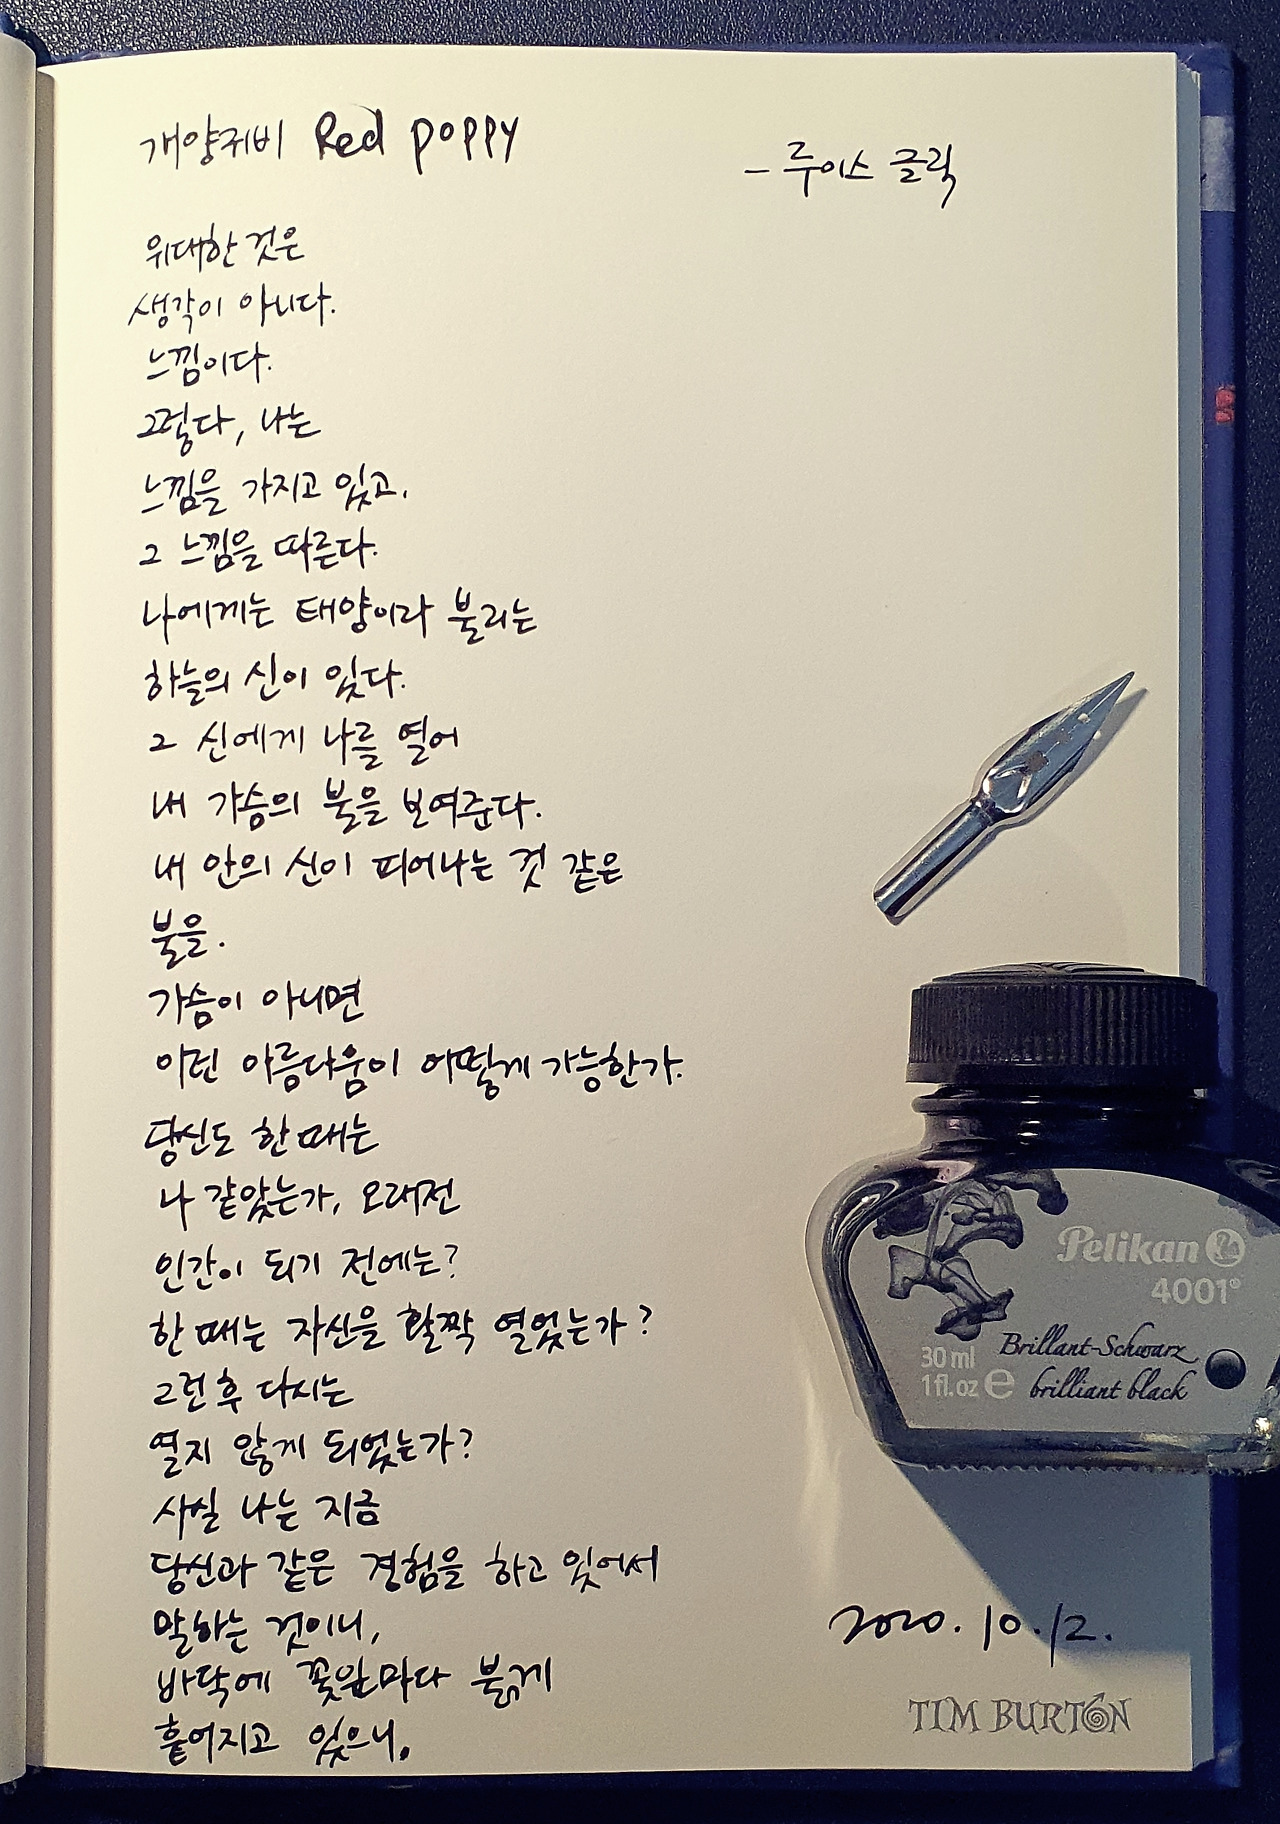 개양귀비 Red poppy
- 루이스 글릭
위대한 것은
생각이 아니다.
느낌이다.
그렇다, 나는
느낌을 가지고 있고,
그 느낌을 따른다.
나에게는 태양이라 불리는
하늘의 신이 있다.
그 신에게 나를 열어
내 가슴의 불을 보여준다.
내 안의 신이 피어나는 것 같은
불을.
가슴이 아니면
이런 아름다움이 어떻게 가능한가.
당신도 한때는
나 같았는가, 오래전
인간이 되기 전에는?
한때는 자신을 활짝 열었는가?
그런 후 다시는
열지 않게 되었는가?
사실 나는 지금
당신과 같은 경험을 하고 있어서
말하는 것이니,
바닥에 꽃잎마다 붉게
흩어지고 있으니.
Pelikan
4001®
30 ml
1 fl. oz e
Brillant-Schwarz
brilliant black
2020. 10. 12.
TIM BURTON